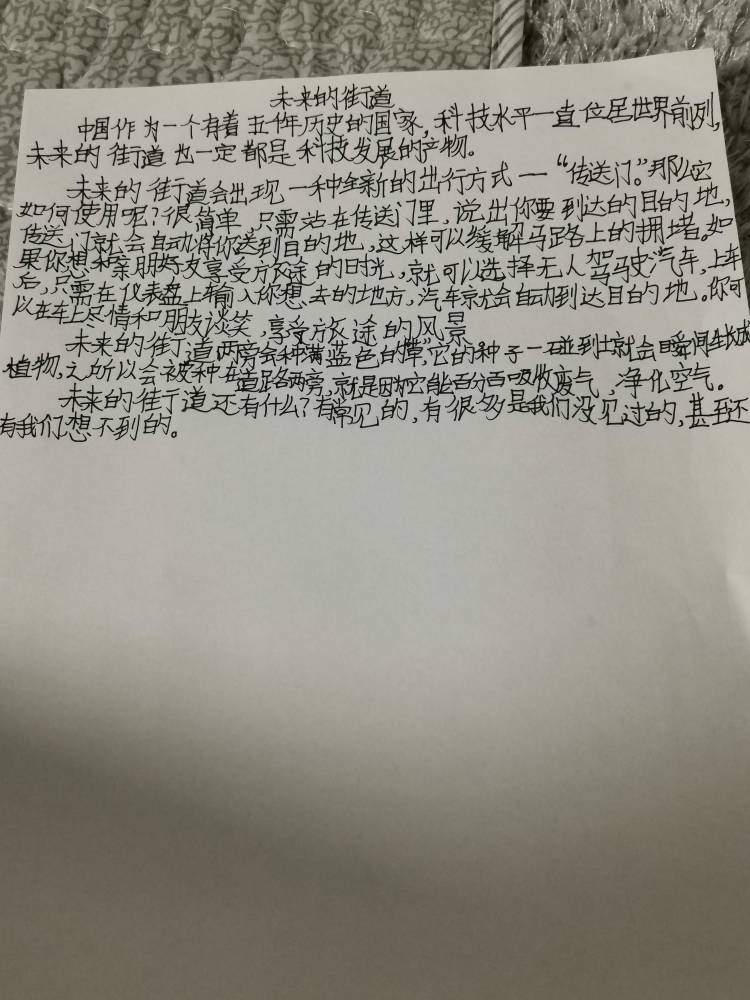 未来的街道
中国作为一个有着五千年历史的国家,科技水平一直位居世界前列,
未来的街道也一定都是科技发展的产物。
未来的街道会出现一种全新的出行方式—“传送门。”那么它
如何使用呢?很简单,只需站在传送门里,说出你要到达的目的地,
传送门就会自动将你送到目的地,这样可以缓解马路上的拥堵。如
果你想和亲朋好友享受旅途的时光,就可以选择无人驾驶汽车,上车
后,只需在仪表盘上输入你想去的地方,汽车就会自动到达目的地。你可
以在车上尽情和朋友谈笑,享受旅途的风景
未来的街道两旁会种满蓝色的草,它的种子一碰到土就会瞬间生长成
植物,之所以会被种在道路两旁,就是因为它能百分百吸收废气,净化空气。
未来的街道还有什么?有常见的,有很多是我们没见过的,甚至还
有我们想不到的。